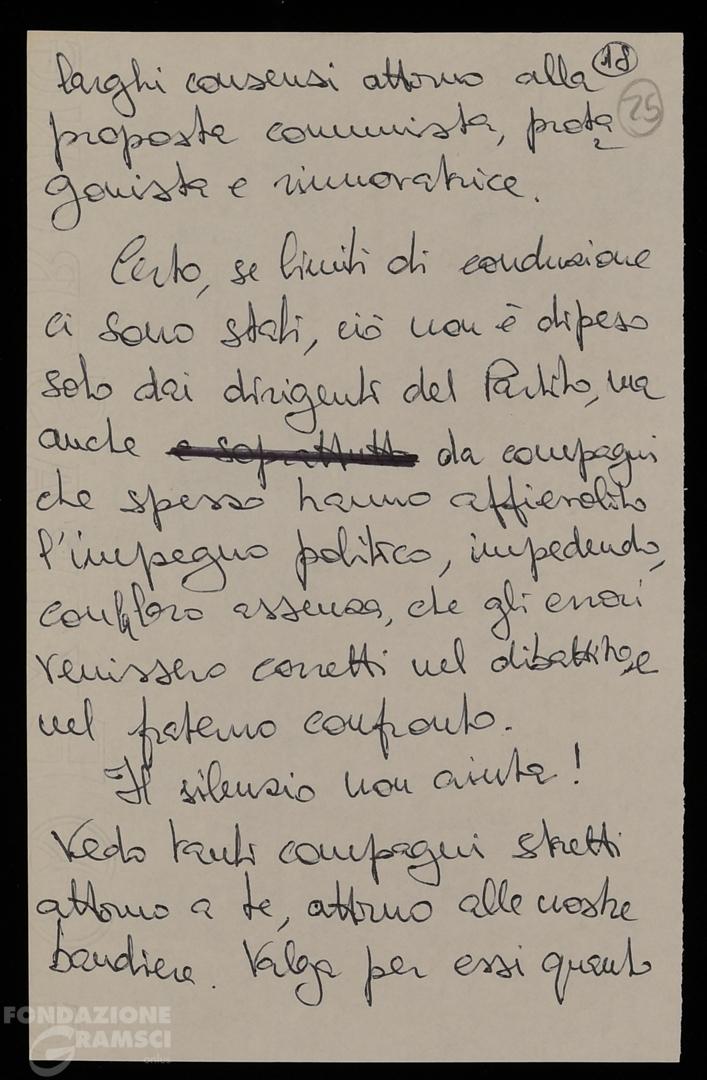 larghi consensi attorno alla 18
proposta comunista, prota 25
gonista e rinnovatrice.
Certo, se limiti di conduzione
ci sono stati, ciò non è dipeso
solo dai dirigenti del Partito, ma
anche e soprattutto da compagni
che spesso hanno affievolito
l'impegno politico, impedendo,
con loro assenza, che gli errori
venissero corretti nel dibattito, e
nel fraterno confronto.
Il silenzio non aiuta!
Vedo tanti compagni stretti
attorno a te, attorno alle nostre
bandiere. Valga per essi quanto
FONDAZIONE
GRAMSCI
onlus